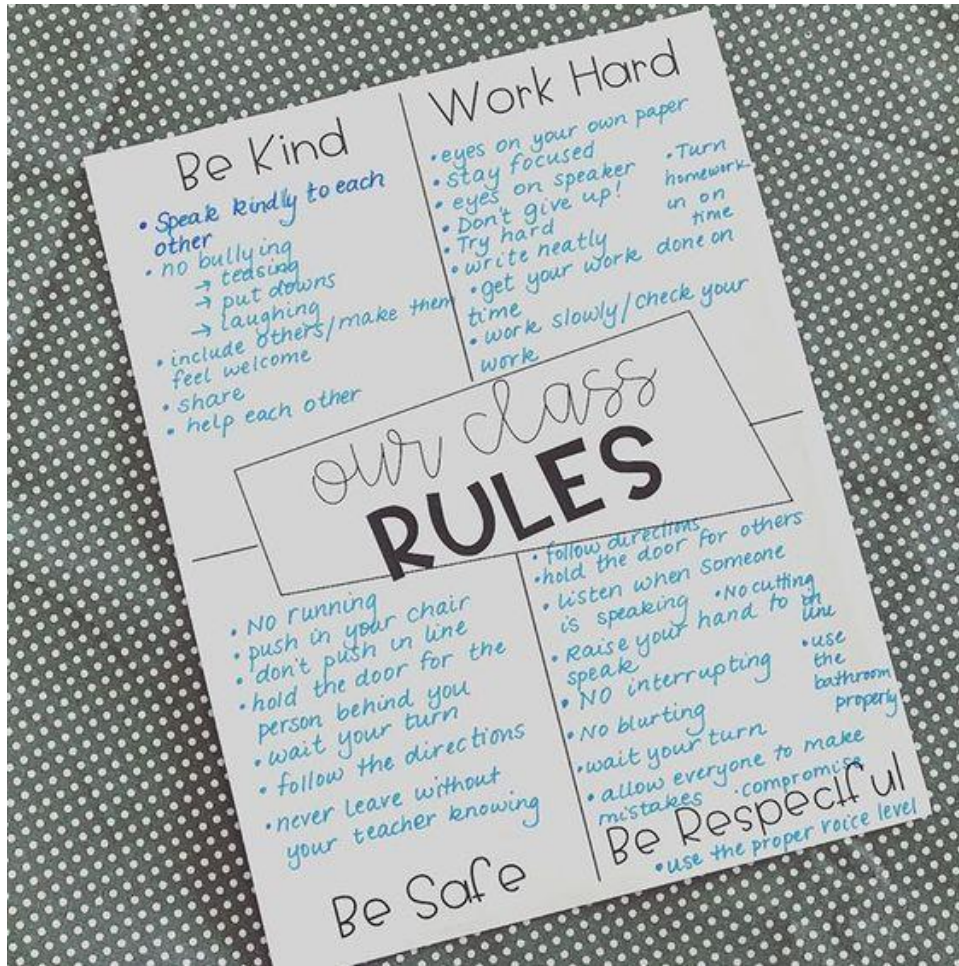 Be Kind
• Speak kindly to each
other
• no bullying
→ teasing
→ put downs
→ laughing
• include others/make them
feel welcome
• share
• help each other
Work Hard
• eyes on your own paper
• stay focused
• eyes on speaker
• Don't give up!
• Try hard
• write neatly
• get your work done on
time
• work slowly/check your
work
• Turn
homework
in on
time
our class
RULES
• No running
• push in your chair
• don't push in line
• hold the door for the
person behind you
• wait your turn
• follow the directions
• never leave without
your teacher knowing
Be Safe
• follow directions
• hold the door for others
• listen when someone
is speaking
• Raise your hand to
speak
• No interrupting
• No blurting
• wait your turn
• allow everyone to make
mistakes • compromise
• No cutting
in
line
• use
the
bathroom
properly
Be Respectful
• use the proper voice level